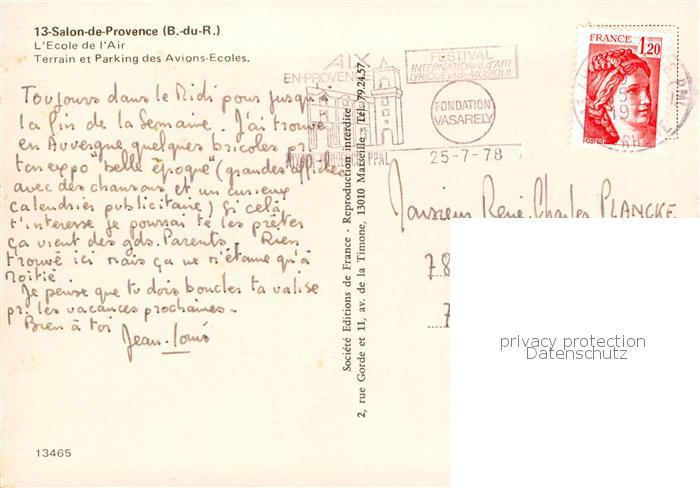 13-Salon-de-Provence (B.-du-R.)
L'Ecole de l'Air
Terrain et Parking des Avions-Ecoles.
Toujours dans le Midi pour jusqu'à
la fin de la semaine. J'ai trouvé
en Auvergne quelques bricoles pr
ton expo "belle époque" (grandes affiches
avec des chansons et un curieux
calendrier publicitaire) Si celà
t'interesse je pourrai te les prêter
ça vient des gds. Parents. Rien
trouvé ici mais ça ne m'étonne qu'à
moitié
Je pense que tu dois boucler ta valise
pr. les vacances prochaines.
Bien à toi
Jean-Louis
13465
Société Editions de France - Reproduction interdite
2, rue Gorde et 11, av. de la Timone, 13010 Marseille - Tél. 79.24.57
AIX
EN-PROVENCE
FESTIVAL
INTERNATIONAL d'ART
LYRIQUE et de MUSIQUE
FONDATION
VASARELY
25-7-78
FRANCE 1,20
POSTES
Monsieur René Charles PLANCKE
78
7
privacy protection
Datenschutz